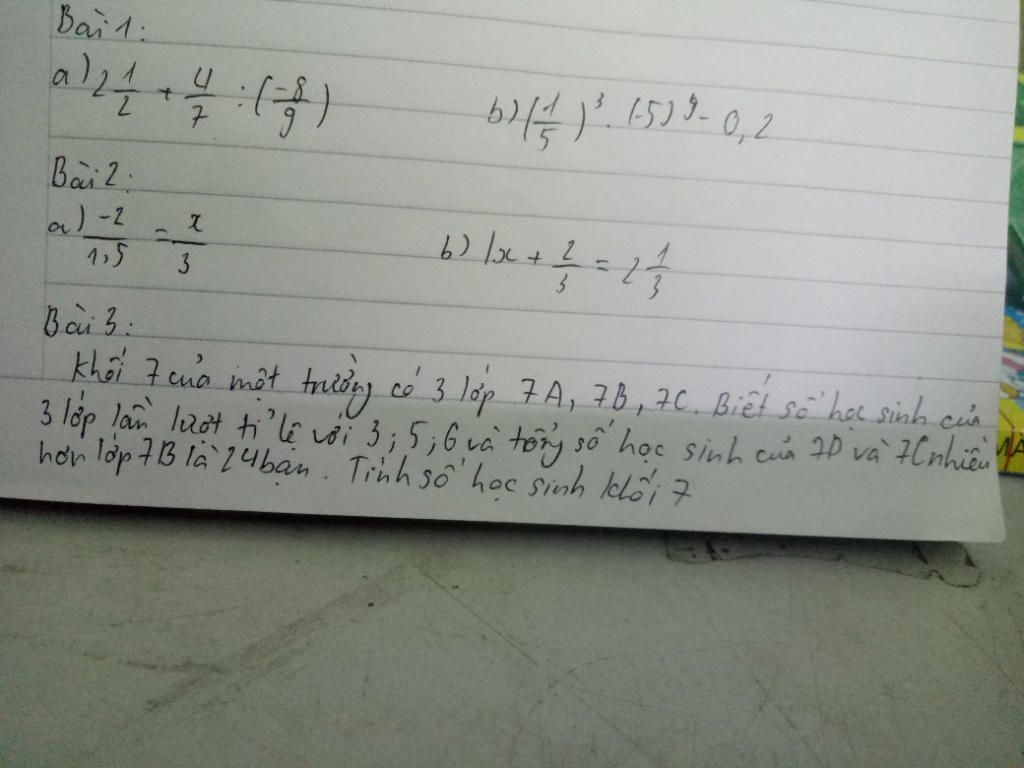 Bài 1:
a) 2 1/2 + 4/7 : (-8/9)    b) (1/5)³ . (-5)⁴ - 0,2
Bài 2:
a) -2/1,5 = x/3    b) |x + 2/3 = 2 1/3
Bài 3:
Khối 7 của một trường có 3 lớp 7A, 7B, 7C. Biết số học sinh của
3 lớp lần lượt tỉ lệ với 3; 5; 6 và tổng số học sinh của 7D và 7C nhiều
hơn lớp 7B là 24 bạn. Tính số học sinh khối 7